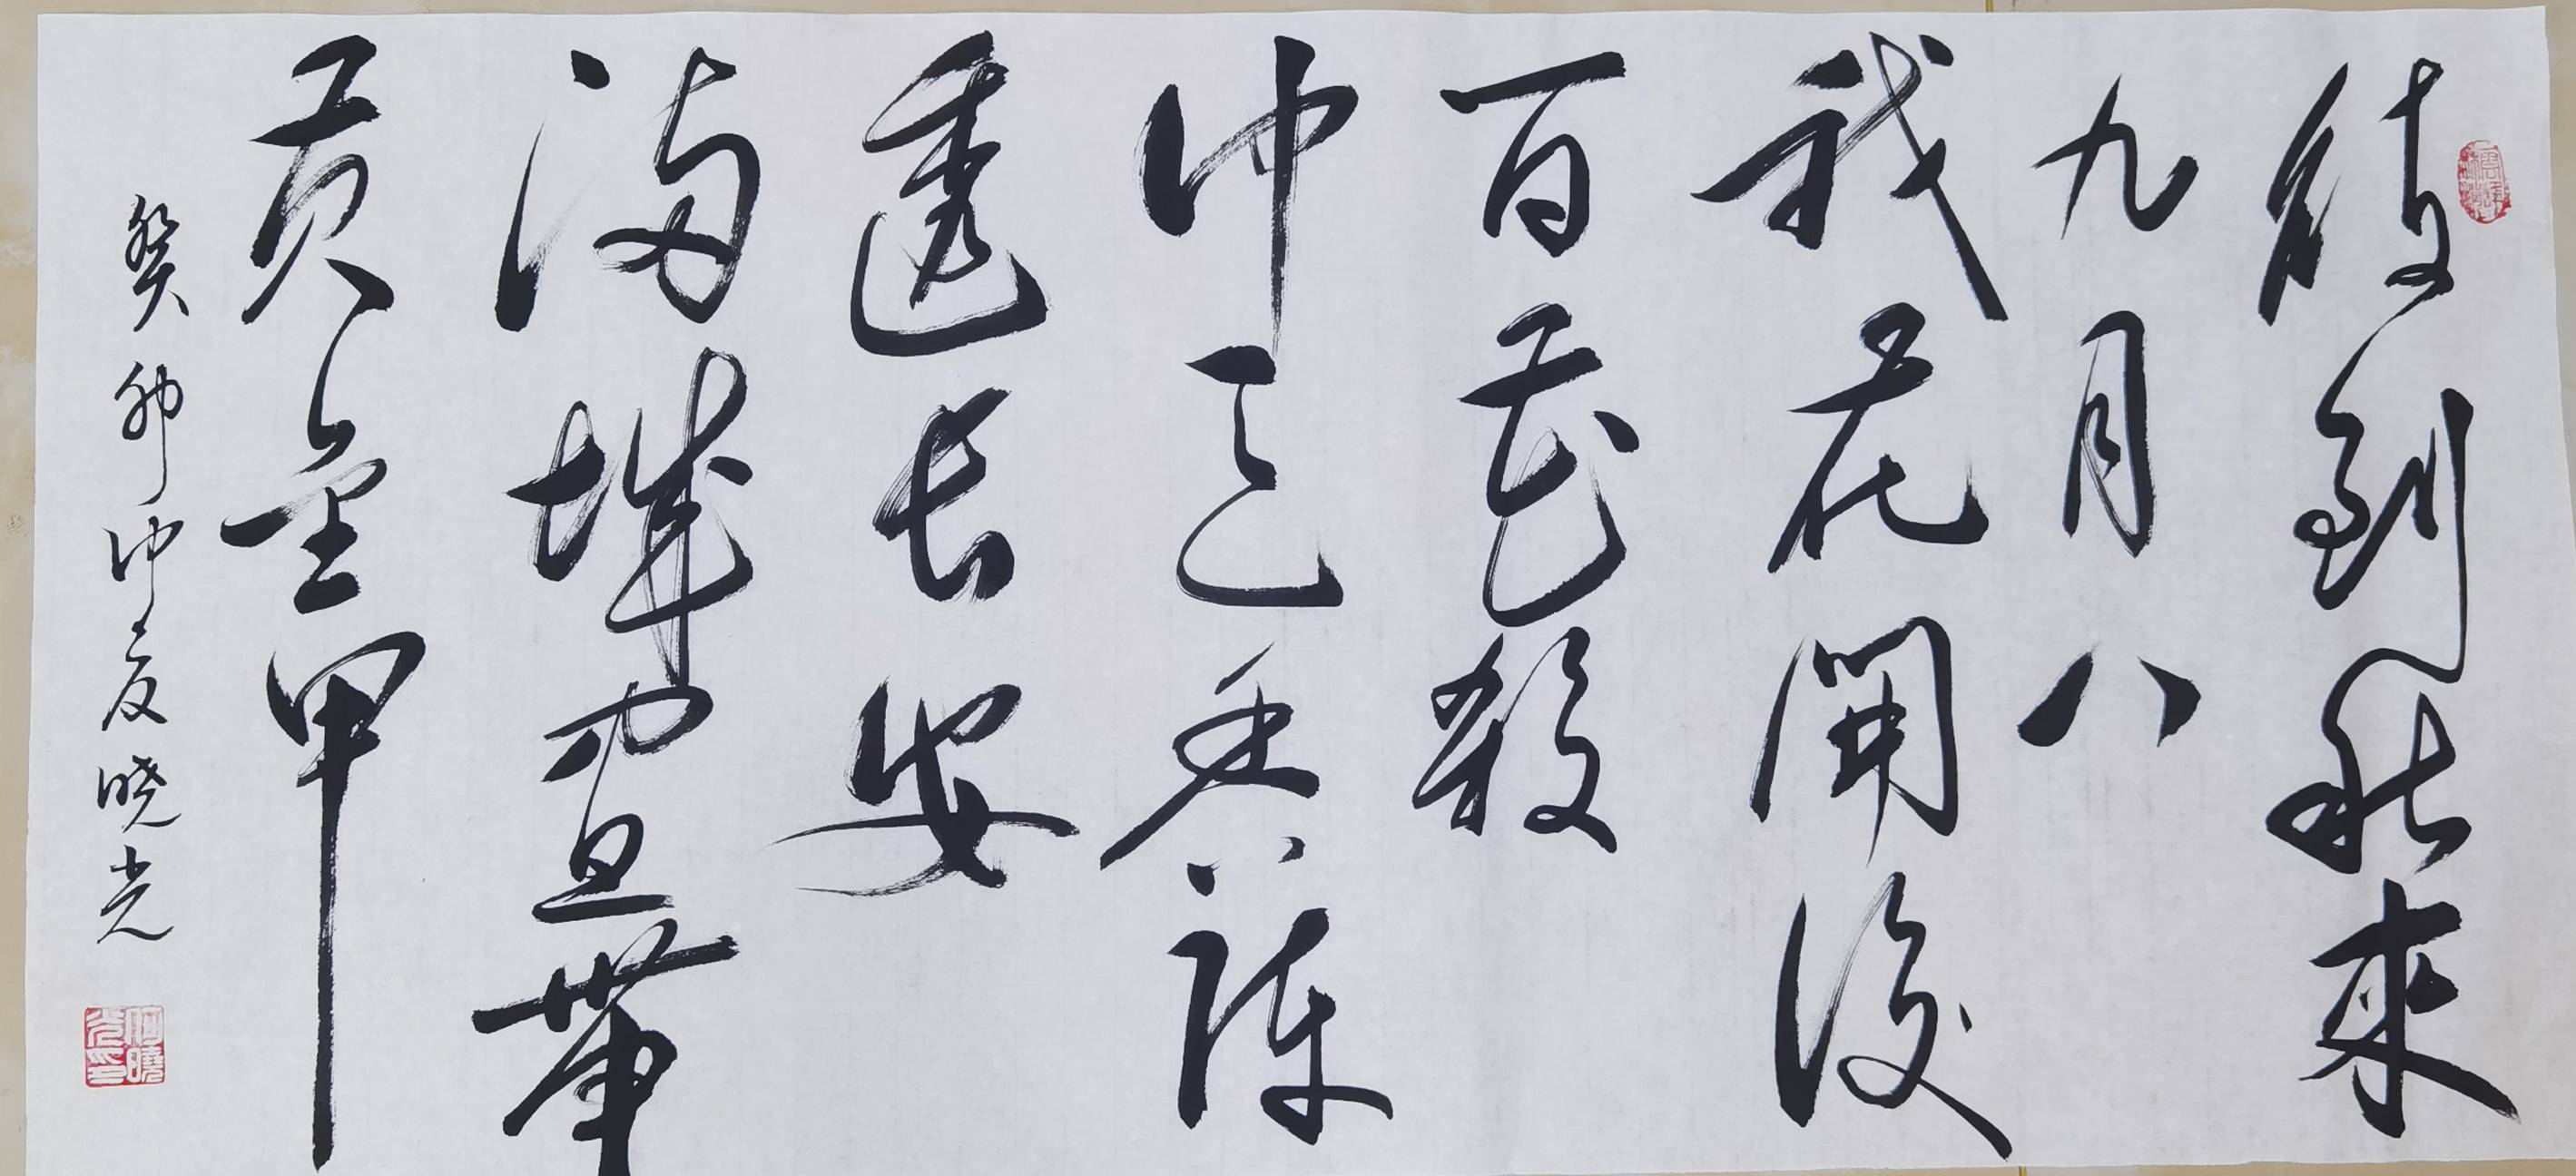 待到秋來
九月八
我花開後
百花殺
冲天香陣
透長安
滿城盡帶
黃金甲
癸卯仲夏晓光